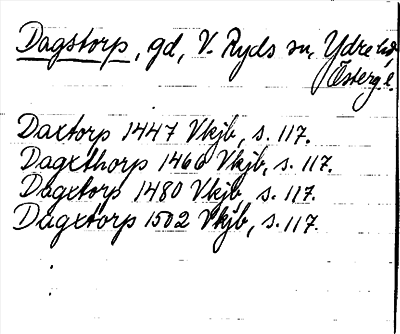 Dagstorp, gd, V. Ryds sn, Ydre hd,
Österg. l.
Daxtorp 1447 Vkjb, s. 117.
Dagxthorp 1460 Vkjb, s. 117.
Dagxtorp 1480 Vkjb, s. 117.
Dagxtorp 1502 Vkjb, s. 117.